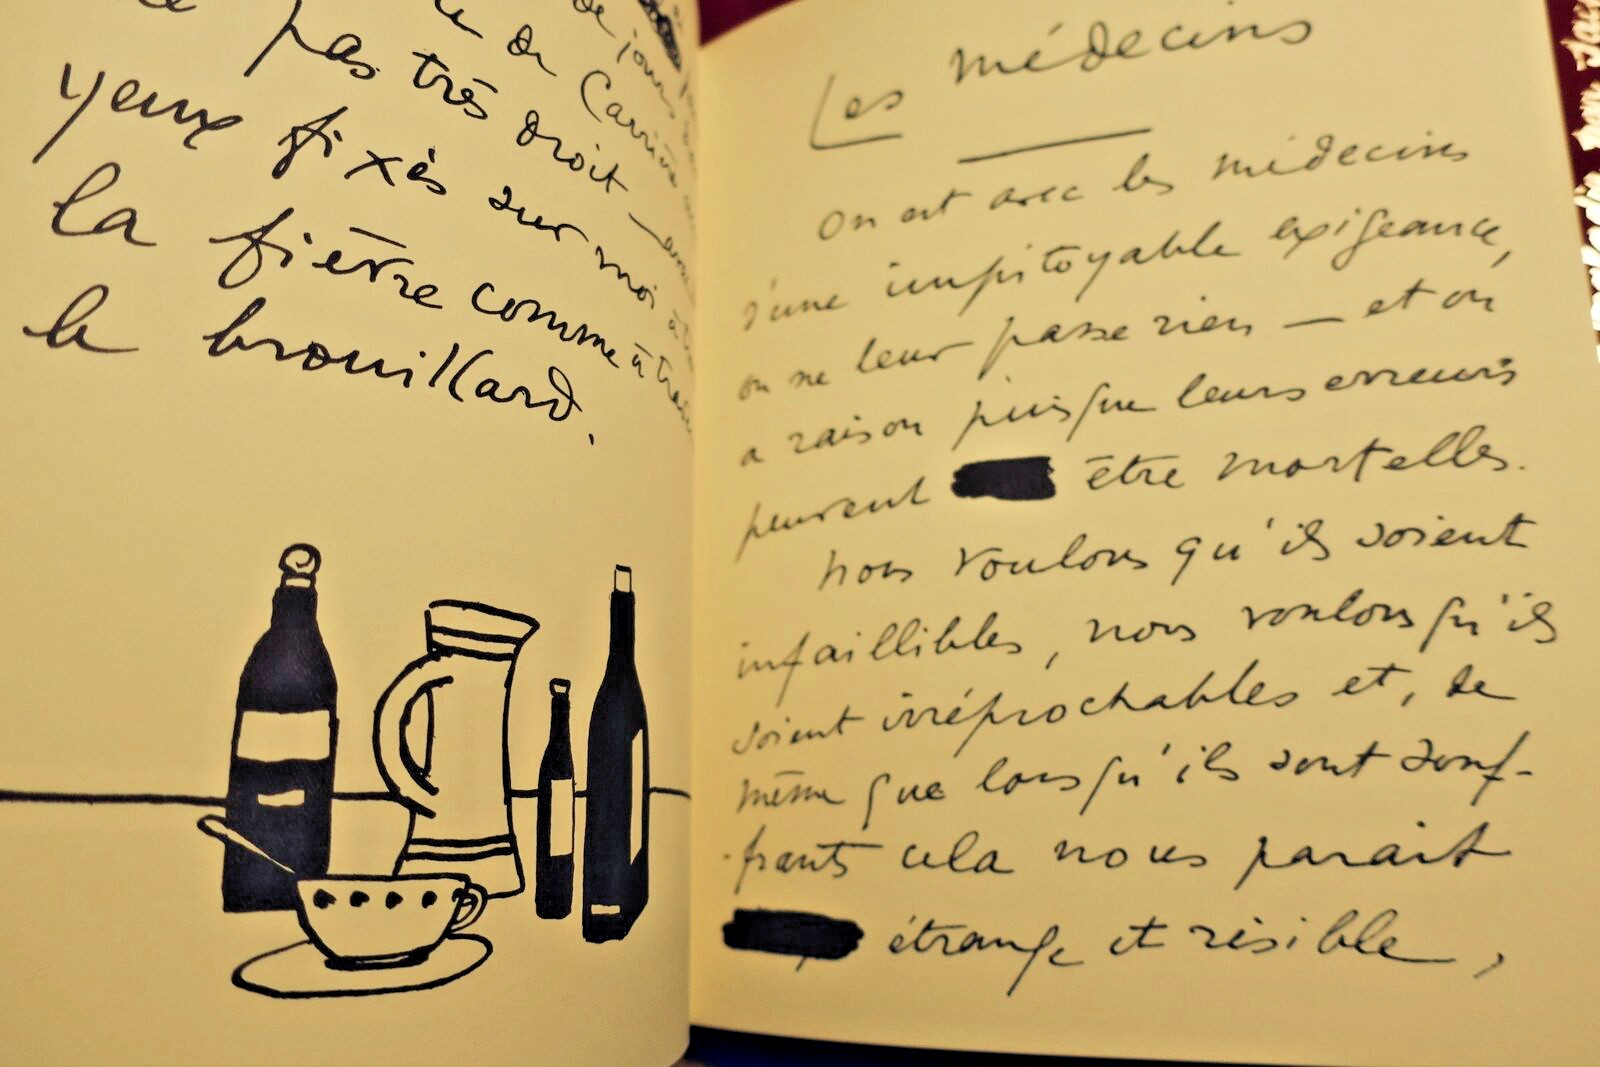 de jours
de Carrière
pas très droit — avec
yeux fixés sur moi à
la fièvre comme à trav
le brouillard.
Les médecins
On est avec les médecins
d'une impitoyable exigeance,
on ne leur passe rien — et on
a raison puisque leurs erreurs
peuvent être mortelles.
Nous voulons qu'ils soient
infaillibles, nous voulons qu'ils
soient irréprochables et, de
même que lorsqu'ils sont souf-
-frants cela nous parait
étrange et risible,